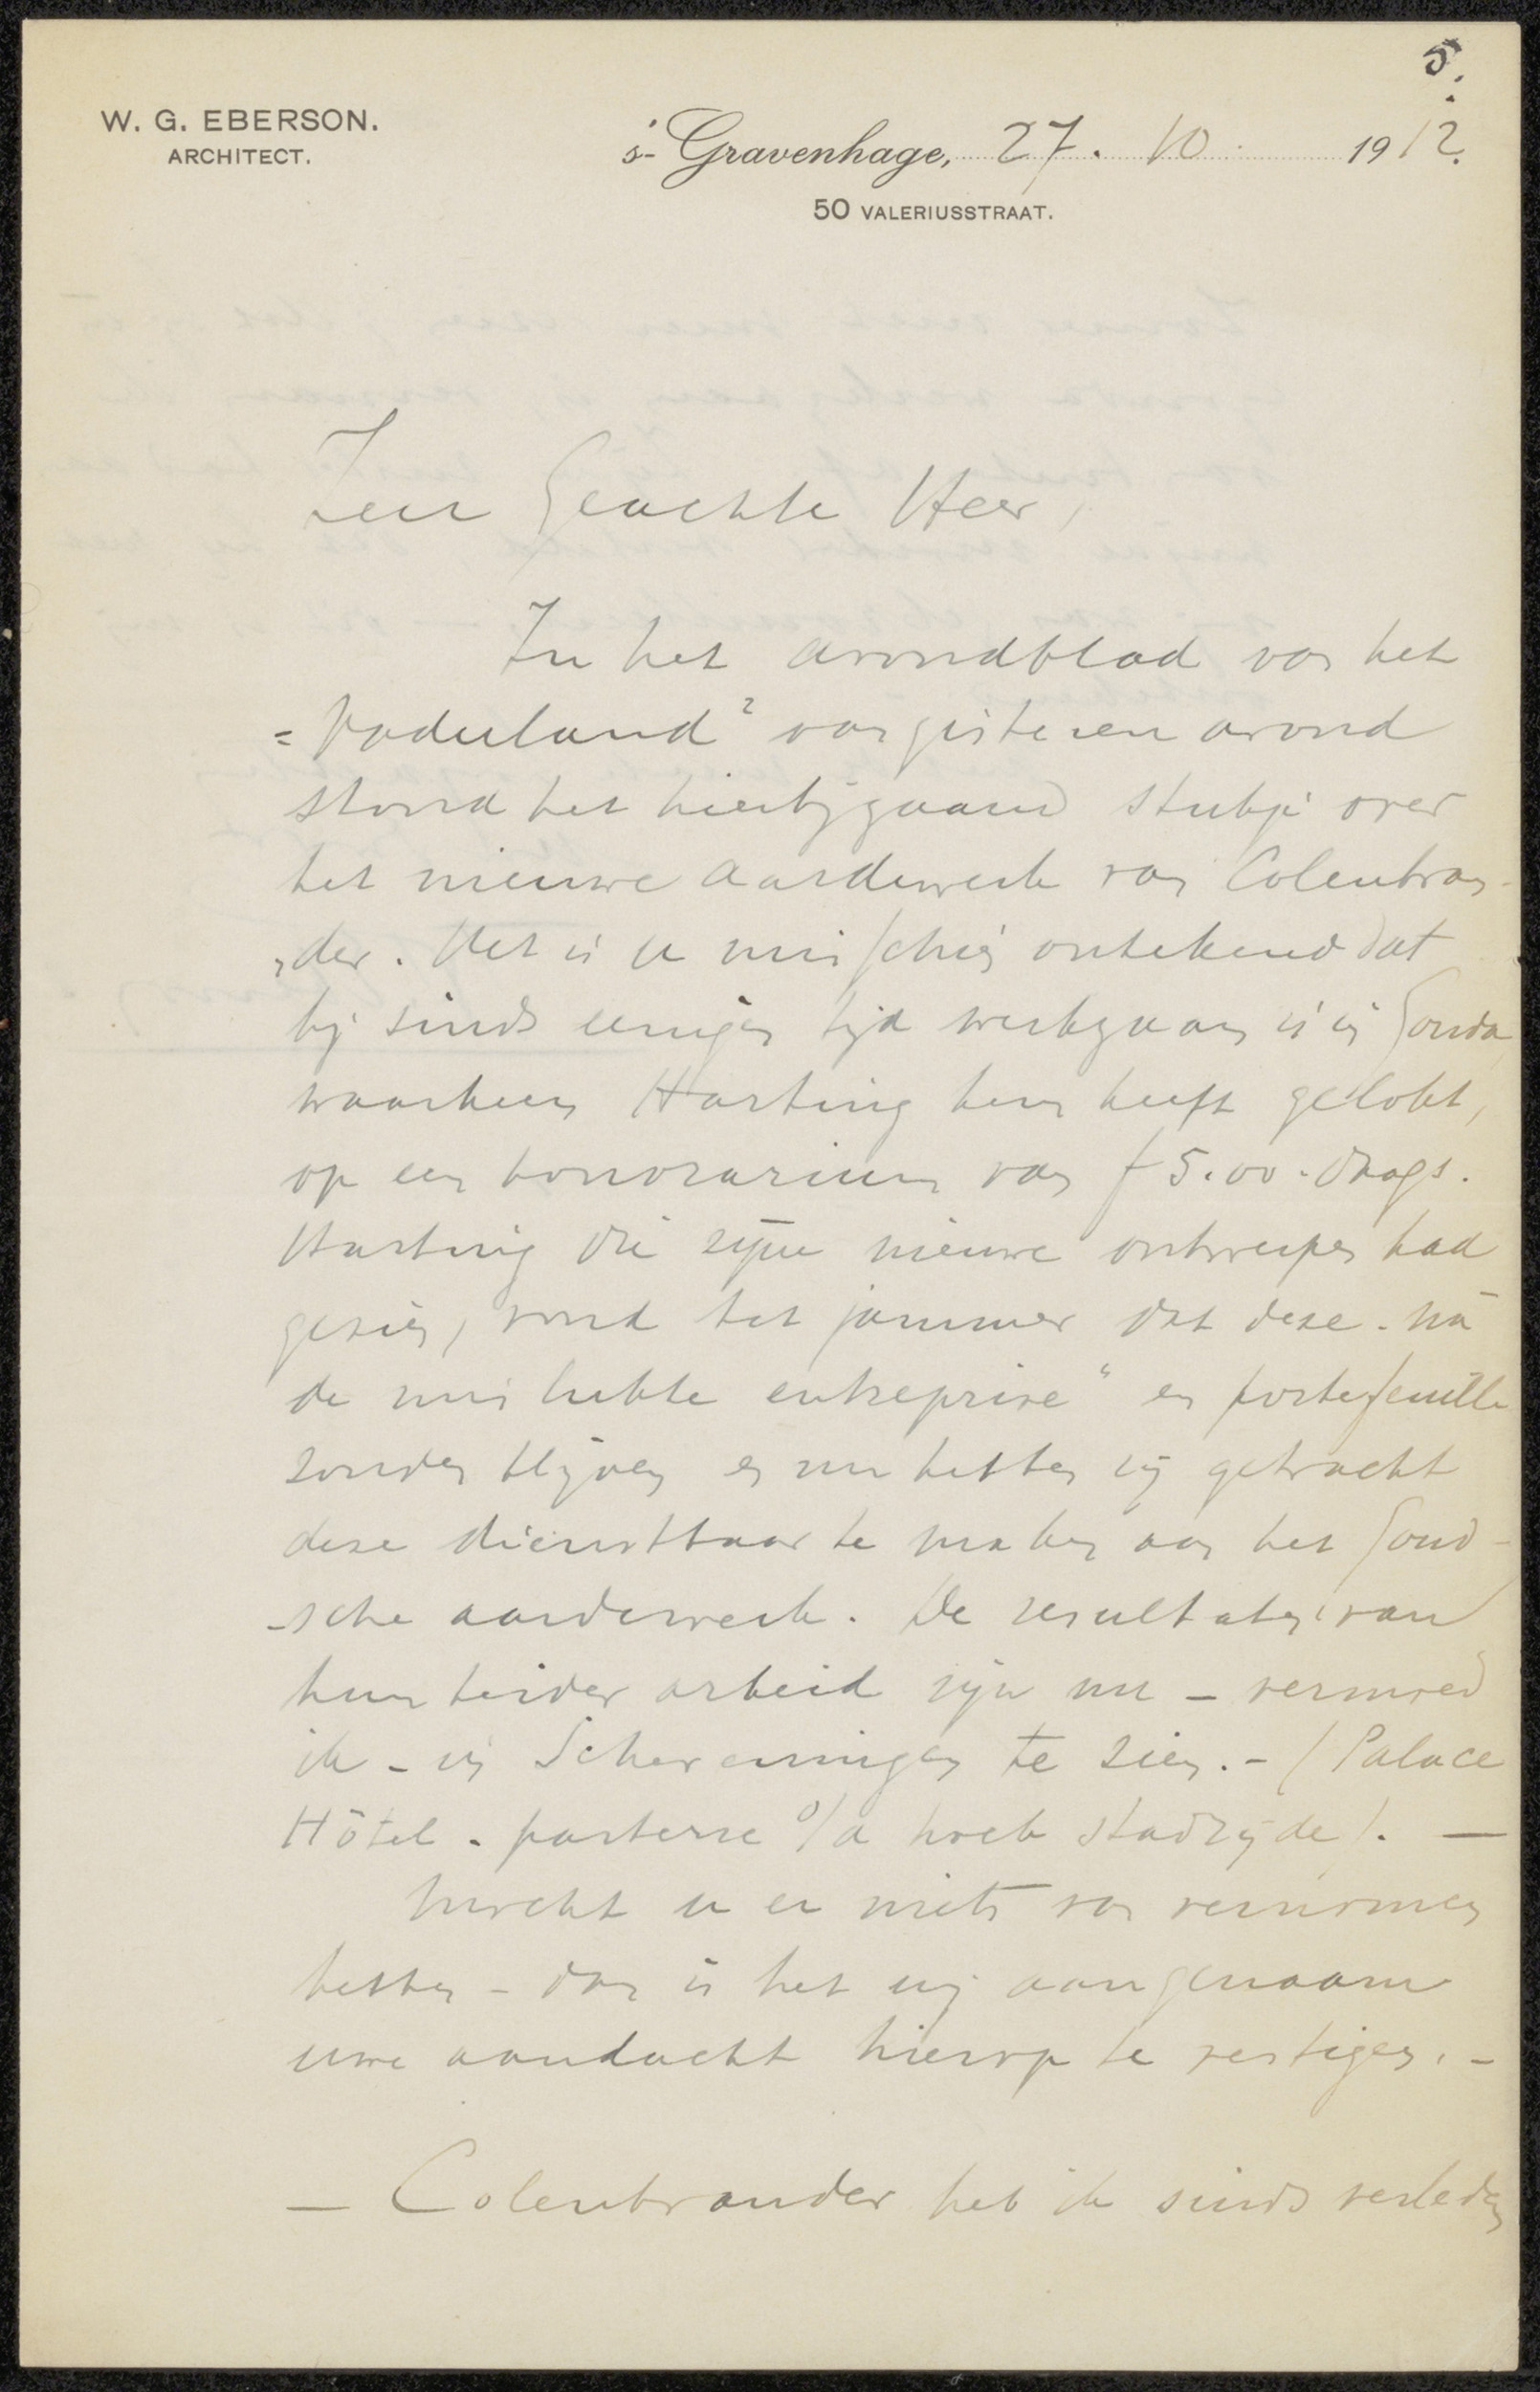 5.
W. G. EBERSON.
ARCHITECT.
's-Gravenhage, 27. 10. 1912.
50 VALERIUSSTRAAT.
Zeer Geachte Heer,
In het avondblad van het
"Vaderland" van gisteren avond
stond het hierbijgaand stukje over
het nieuwe aardewerk van Colenbran-
-der. Het is u misschien onbekend dat
hij sinds eenigen tijd werkzaam is in Gouda
waarheen Harting hem heeft gelokt,
op een honorarium van f 5.00. daags.
Harting die zijne nieuwe ontwerpen had
gezien, vond het jammer dat deze - na
de mislukte entreprise" en portefeuille
zouden blijven en nu hebben zij getracht
deze dienstbaar te maken aan het Goud-
-sche aardewerk. De resultaten van
hun beider arbeid zijn nu - vermoed
ik - in Scheveningen te zien. - (Palace
Hôtel - parterre o/d hoek stadzijde). -
Mocht u er niets van vernomen
hebben - dan is het mij aangenaam
uwe aandacht hierop te vestigen. -
- Colenbrander heb ik sinds verleden